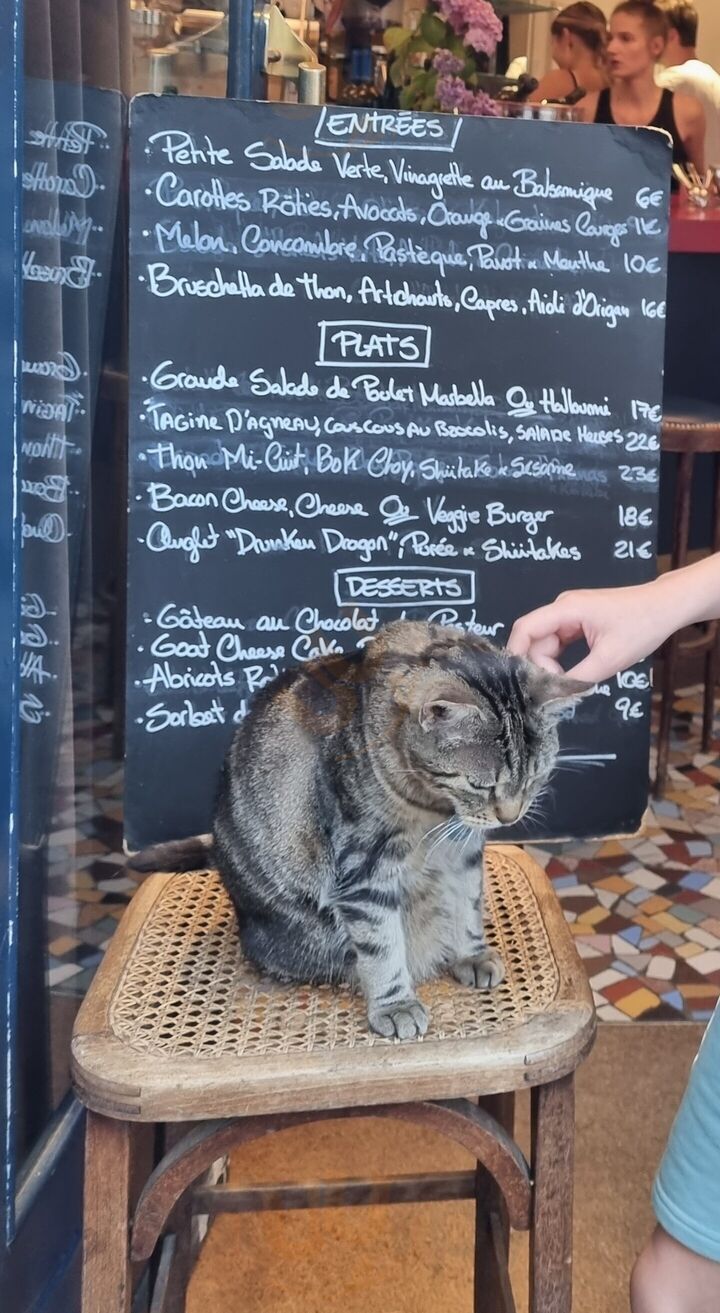 ENTRÉES
Petite Salade Verte, Vinagrette au Balsamique 6€
· Carottes Rôties, Avocats, Orange & Graines Courges 11€
· Melon, Concombre, Pastèque, Pavot & Menthe 10€
· Bruschetta de Thon, Artichauts, Capres, Aioli d'Origan 16€
PLATS
· Grande Salade de Poulet Marbella Ou Halloumi 17€
· TAGINE D'AGNEAU, COUSCOUS AU BROCOLIS, SALADE HERBES 22€
· Thon Mi-Cuit, Bok Choy, Shiitake & Sesame 23€
· Bacon Cheese, Cheese Ou Veggie Burger 18€
· Onglet "Drunken Dragon", Purée & Shiitakes 21€
DESSERTS
· Gâteau au Chocolat du Pasteur
· Goat Cheese Cake
· Abricots 10€
· Sorbet 9€